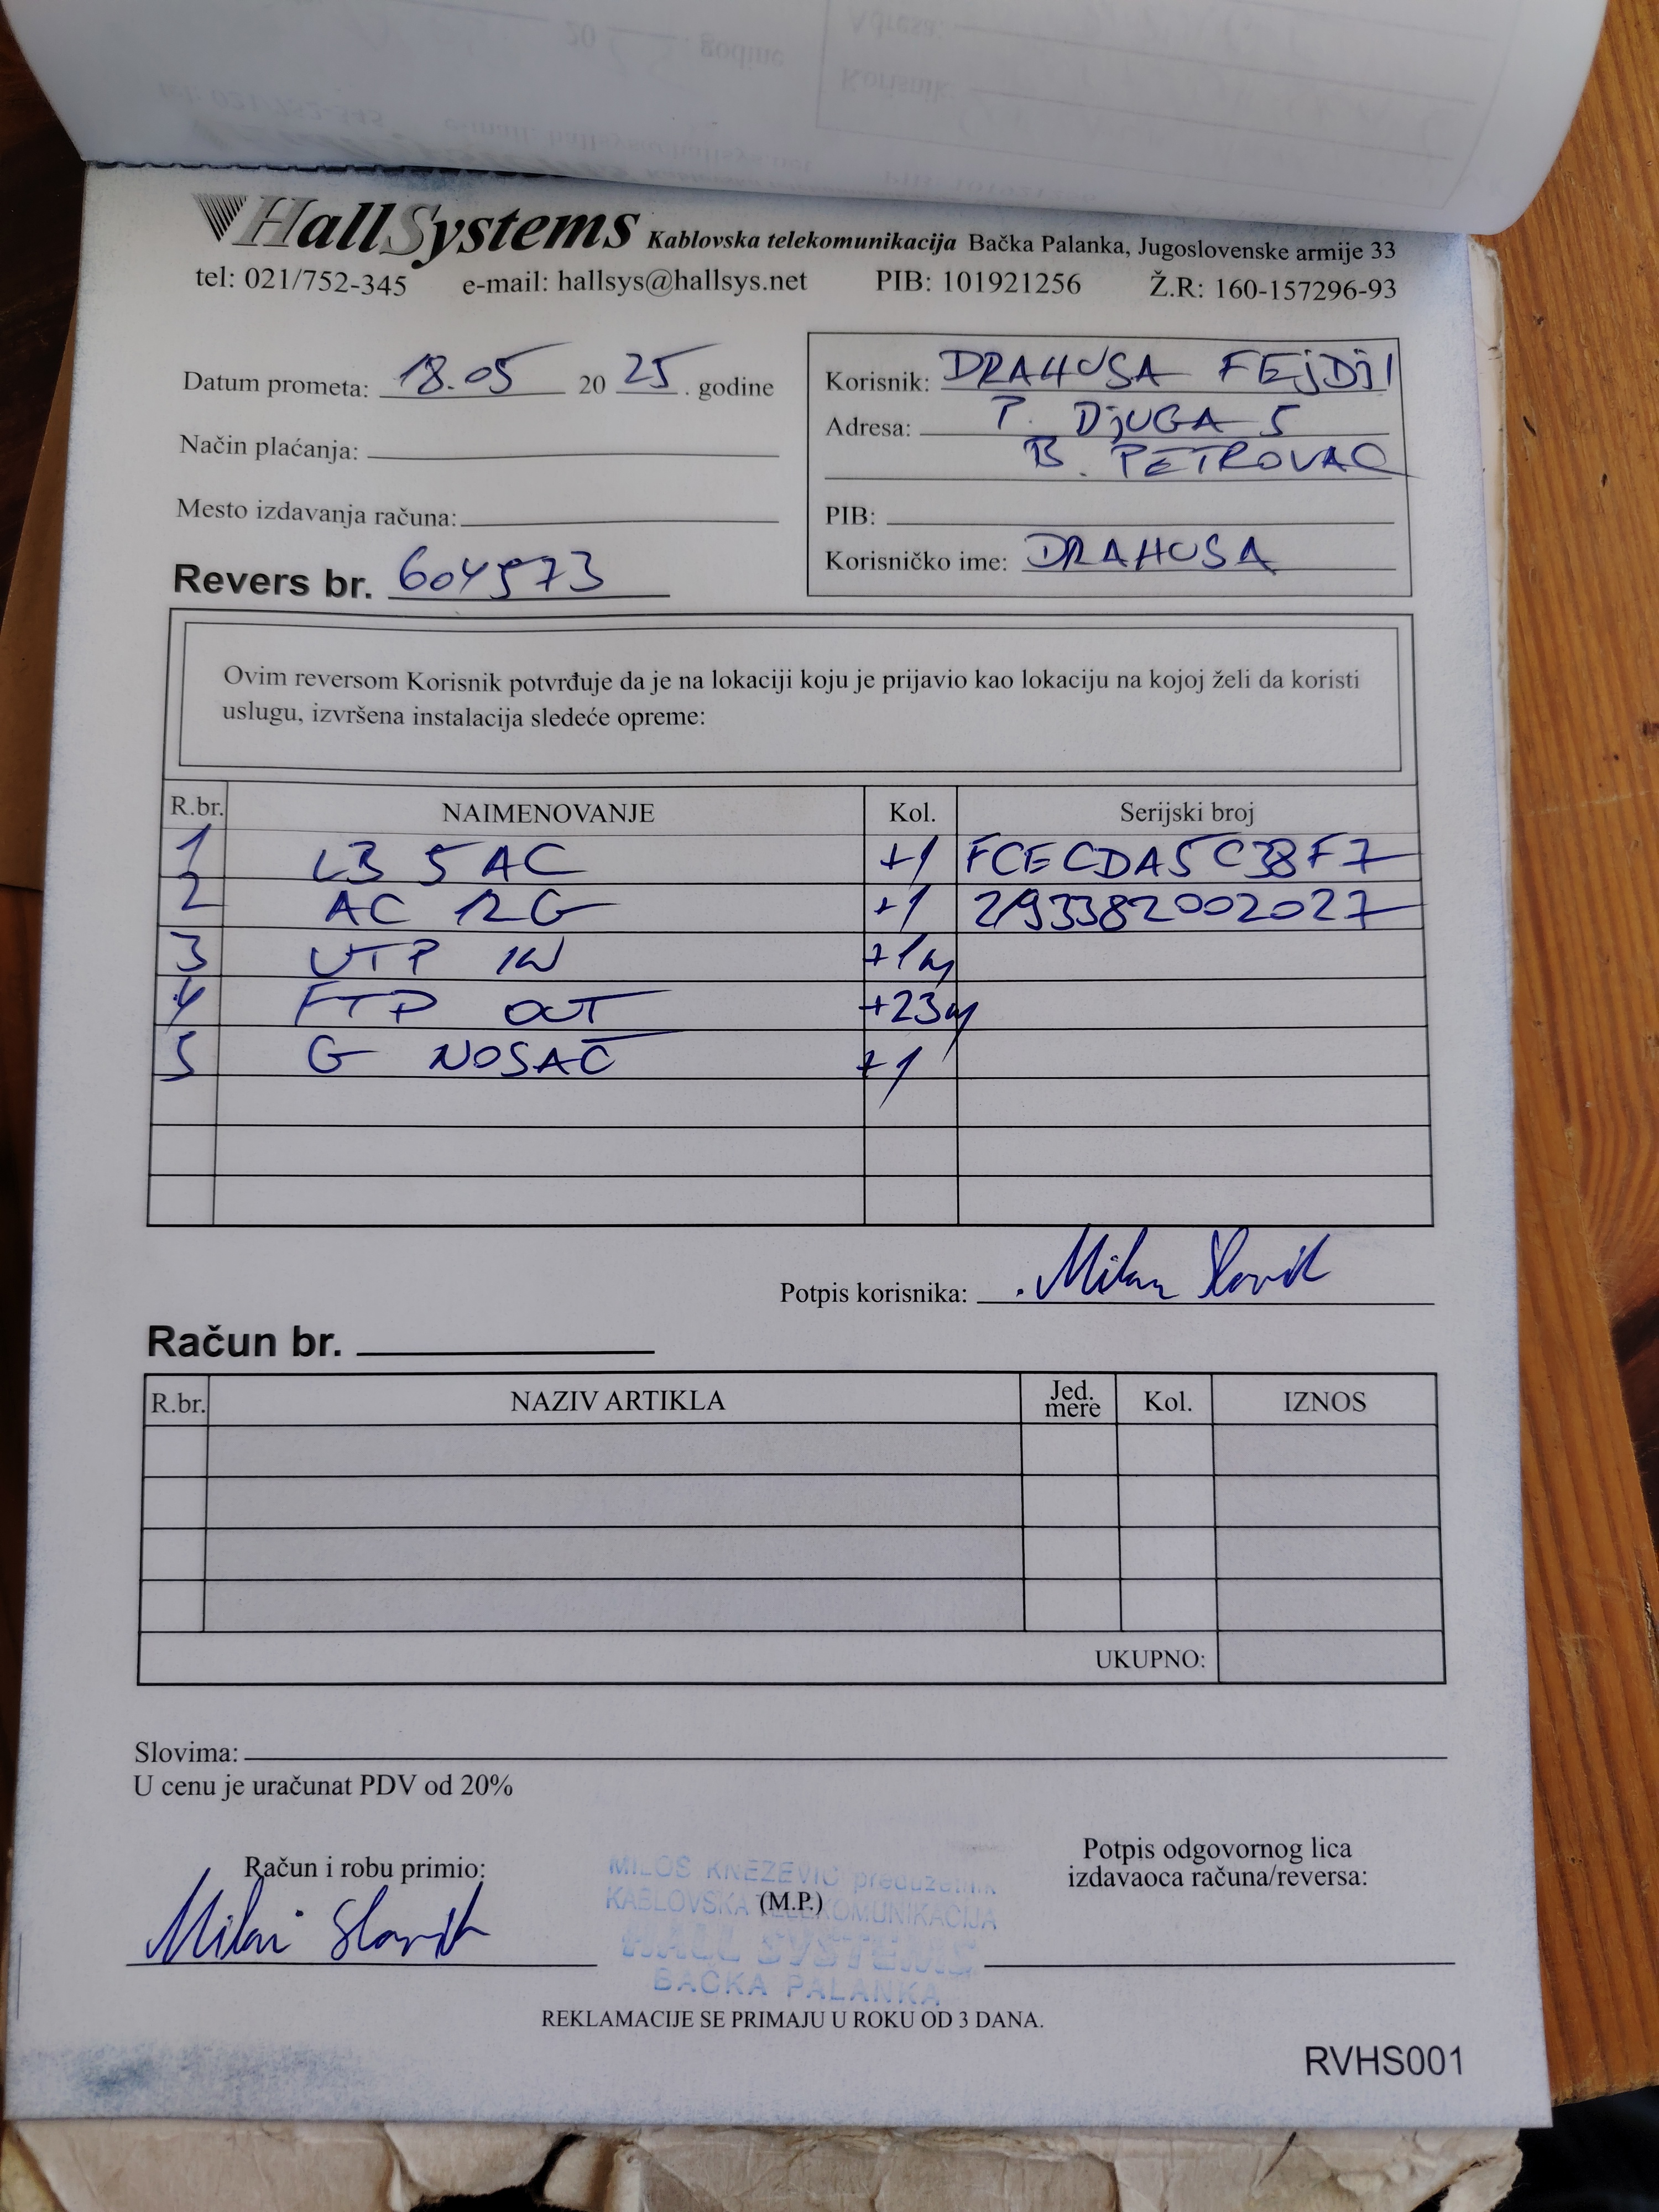 HallSystems Kablovska telekomunikacija Bačka Palanka, Jugoslovenske armije 33
tel: 021/752-345 e-mail: hallsys@hallsys.net PIB: 101921256 Ž.R: 160-157296-93
Datum prometa: 18.05 20 25 . godine
Način plaćanja:
Mesto izdavanja računa:
Revers br. 604573
Korisnik: DRAHUSA FEjDjI
Adresa: P. DjUGA 5
B. PETROVAC
PIB:
Korisničko ime: DRAHUSA
Ovim reversom Korisnik potvrđuje da je na lokaciji koju je prijavio kao lokaciju na kojoj želi da koristi
uslugu, izvršena instalacija sledeće opreme:
R.br. NAIMENOVANJE Kol. Serijski broj
1 LB 5 AC +1 FCECDA5C38F7
2 AC 12G +1 2193382002027
3 UTP IN +1m
4 FTP OUT +23m
5 G NOSAČ +1
Potpis korisnika: Milan Slavik
Račun br.
R.br. NAZIV ARTIKLA Jed. mere Kol. IZNOS
UKUPNO:
Slovima:
U cenu je uračunat PDV od 20%
Račun i robu primio:
Milan Slavik
MILOŠ KNEŽEVIĆ preduzetnik
KABLOVSKA TELEKOMUNIKACIJA
(M.P.)
HALL SYSTEMS
BAČKA PALANKA
Potpis odgovornog lica
izdavaoca računa/reversa:
REKLAMACIJE SE PRIMAJU U ROKU OD 3 DANA.
RVHS001